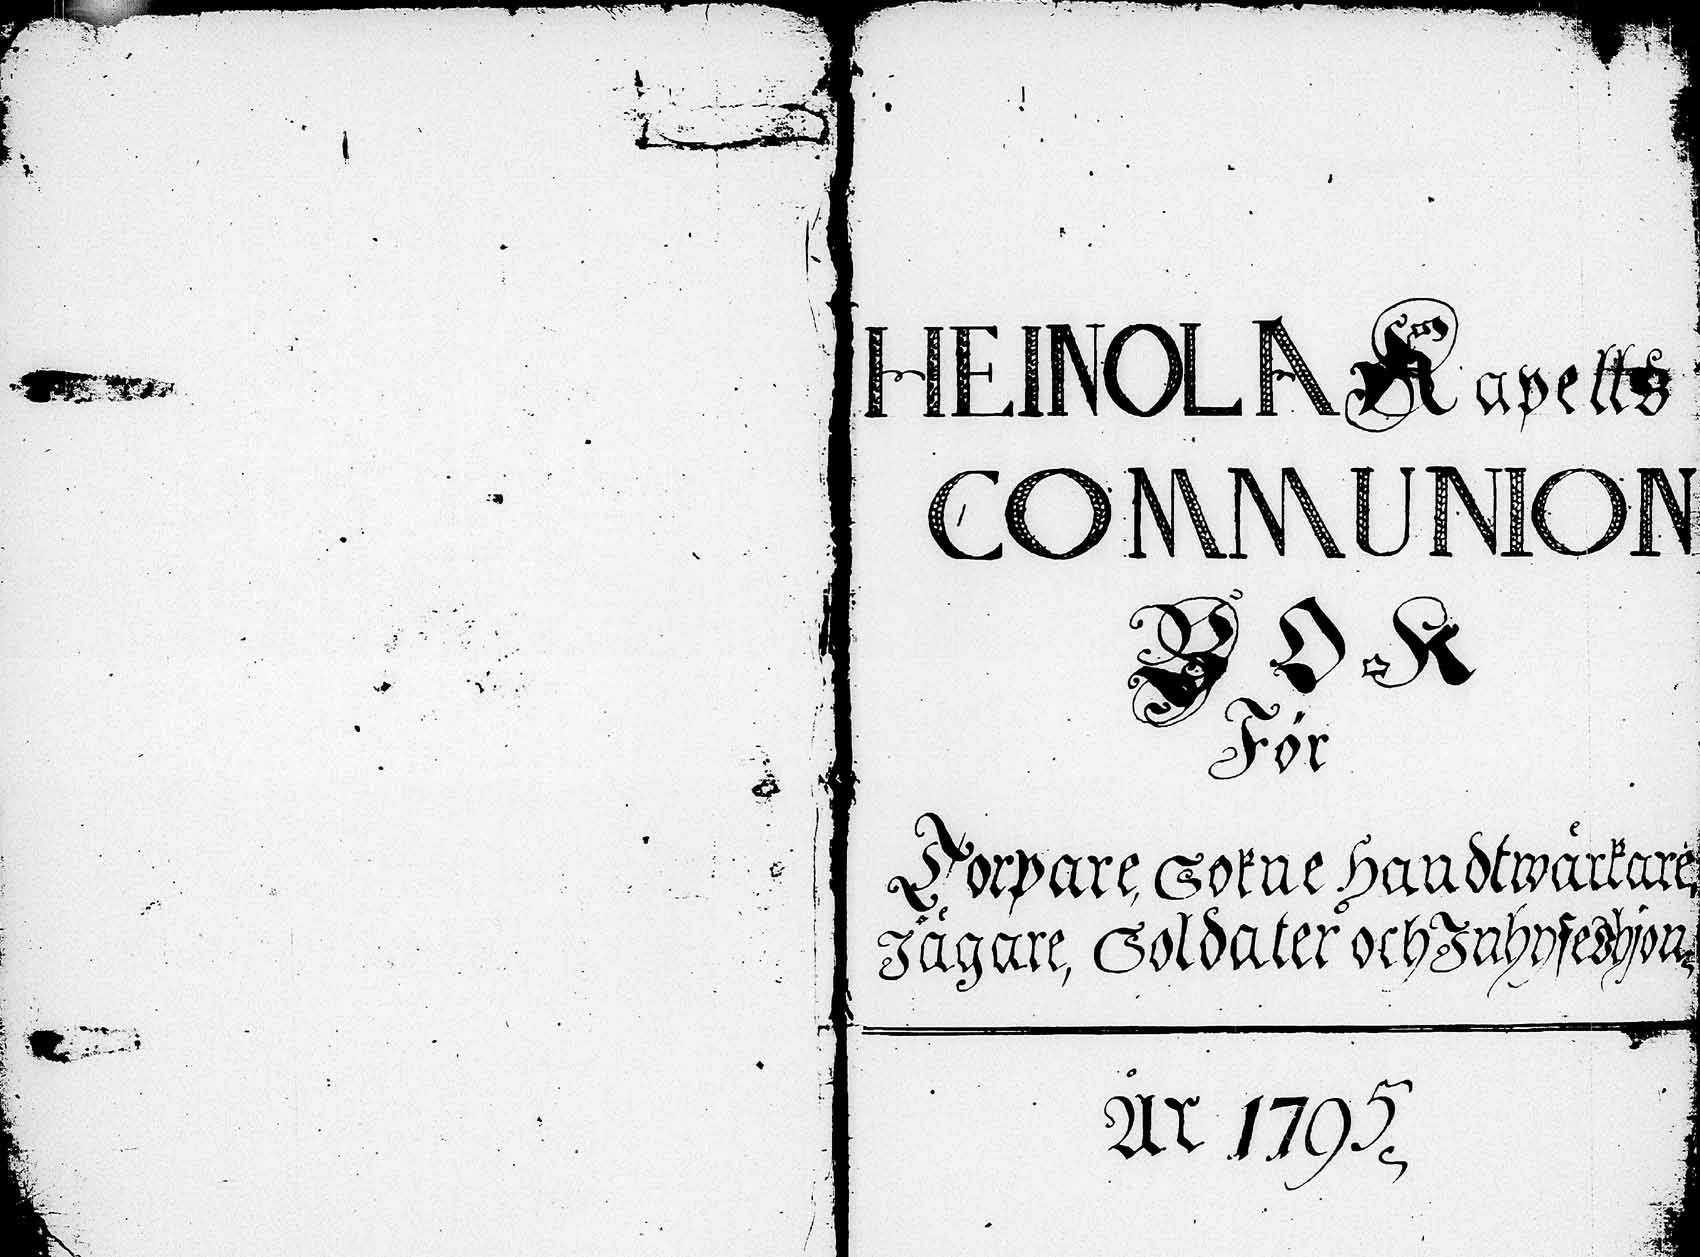 HEINOLA Kapells
COMMUNION
BOK
För
Torpare, Sokne Handtwärkare,
Jägare, Soldater och Inhyseshjon,
År 1795,